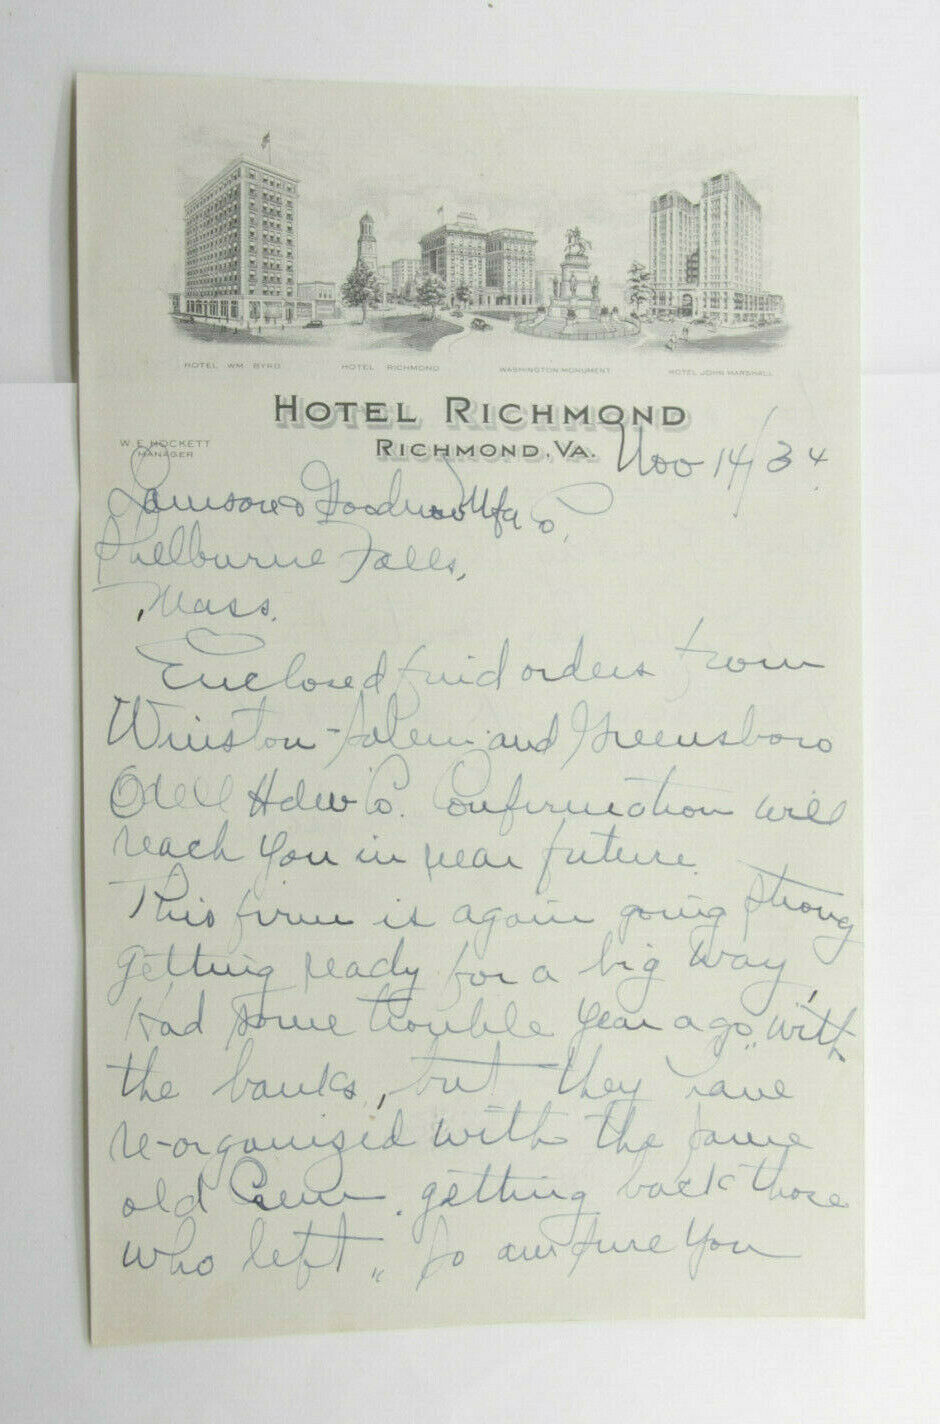 HOTEL WM BYRD
HOTEL RICHMOND
WASHINGTON MONUMENT
HOTEL JOHN MARSHALL
HOTEL RICHMOND
RICHMOND, VA.
W. E. HOCKETT
MANAGER
Nov 14/34
Lamson & Goodnow Mfg Co,
Shelburne Falls,
Mass.
Enclosed find orders from
Winston-Salem and Greensboro
Odell Hdw Co. Confirmation will
reach you in near future.
This firm is again going strong
getting ready for a big way,
Had some trouble year ago, with
the banks, but they have
re-organized with the same
old Crew, getting back those
who left" So am sure you